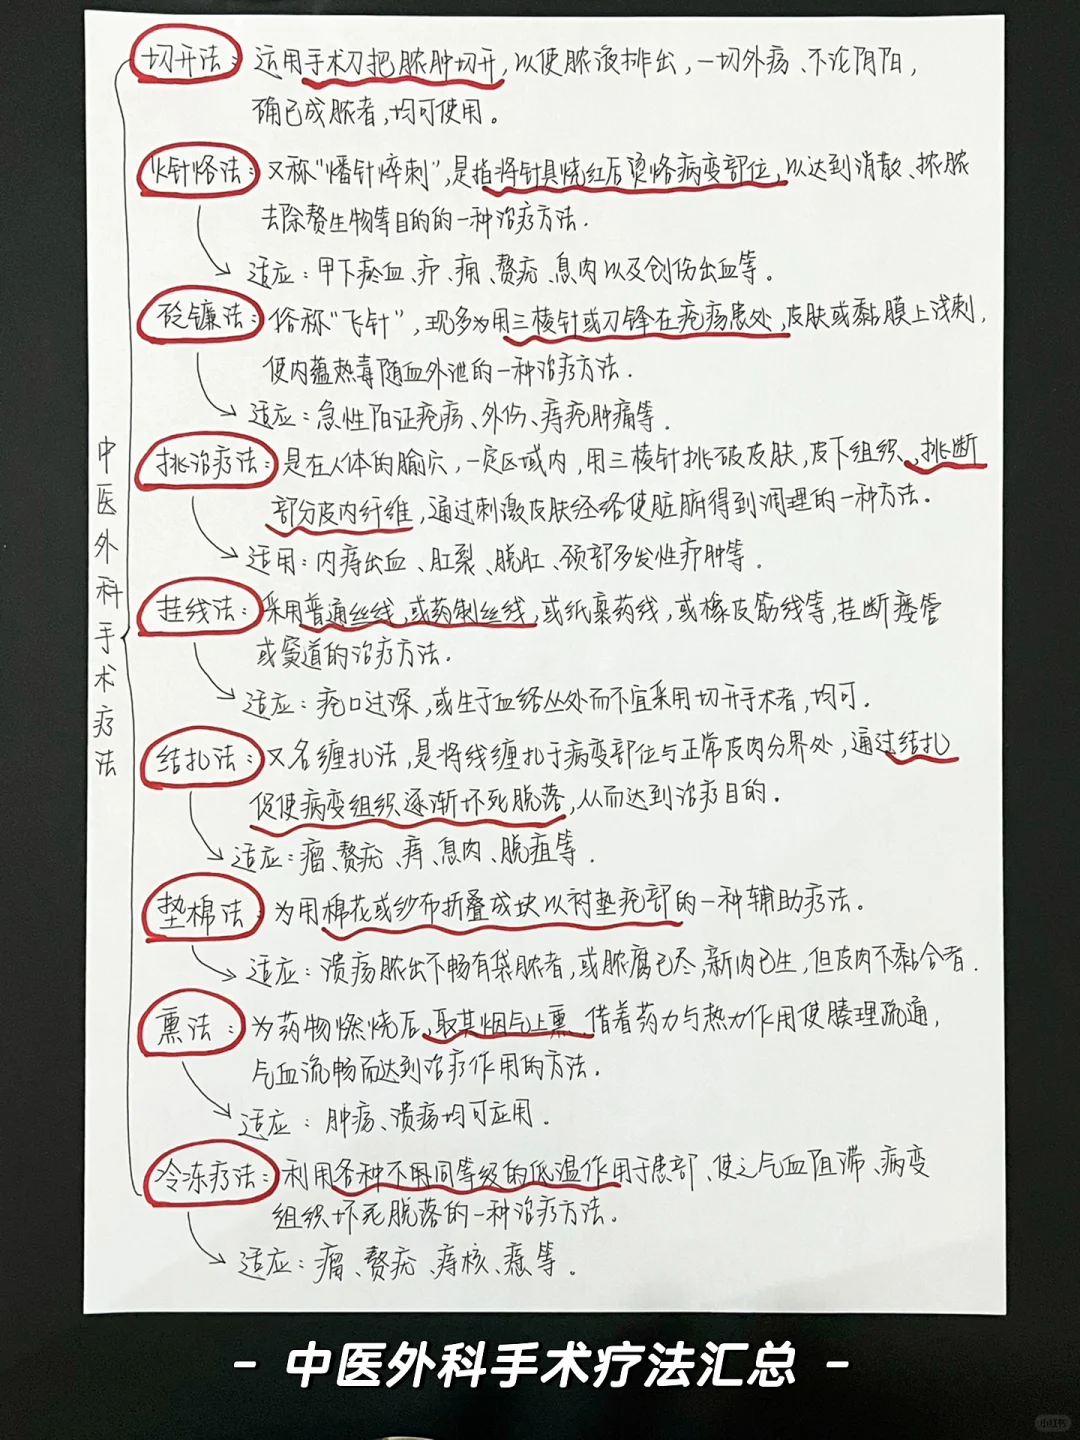 中医外科手术疗法
切开法：运用手术刀把脓肿切开，以使脓液排出，一切外疡、不论阴阳，
确已成脓者，均可使用。
火针烙法：又称“燔针焠刺”，是指将针具烧红后烫烙病变部位，以达到消散、排脓
去除赘生物等目的的一种治疗方法.
适应：甲下瘀血、疖、痈、赘疣、息肉以及创伤出血等。
砭镰法：俗称“飞针”，现多为用三棱针或刀锋在疮疡患处，皮肤或黏膜上浅刺，
使内蕴热毒随血外泄的一种治疗方法.
适应：急性阳证疮疡、外伤、痔疮肿痛等.
挑治疗法：是在人体的腧穴，一定区域内，用三棱针挑破皮肤，皮下组织，挑断
部分皮内纤维，通过刺激皮肤经络使脏腑得到调理的一种方法。
适用：内痔出血、肛裂、脱肛、颈部多发性疖肿等.
挂线法：采用普通丝线，或药制丝线，或纸裹药线，或橡皮筋线等，挂断瘘管
或窦道的治疗方法.
适应：疮口过深，或生于血络丛处而不宜采用切开手术者，均可.
结扎法：又名缠扎法，是将线缠扎于病变部位与正常皮肉分界处，通过结扎
促使病变组织逐渐坏死脱落，从而达到治疗目的.
适应：瘤、赘疣、痔、息肉、脱疽等.
垫棉法：为用棉花或纱布折叠成块以衬垫疮部的一种辅助疗法。
适应：溃疡脓出不畅有袋脓者，或脓腐已尽，新肉已生，但皮肉不黏合者.
熏法：为药物燃烧后，取其烟气上熏，借着药力与热力作用使腠理疏通，
气血流畅而达到治疗作用的方法.
适应：肿疡、溃疡均可应用.
冷冻疗法：利用各种不同等级的低温作用于患部、使之气血阻滞、病变
组织坏死脱落的一种治疗方法.
适应：瘤、赘疣、痔核、痣等.
- 中医外科手术疗法汇总 -
小红书